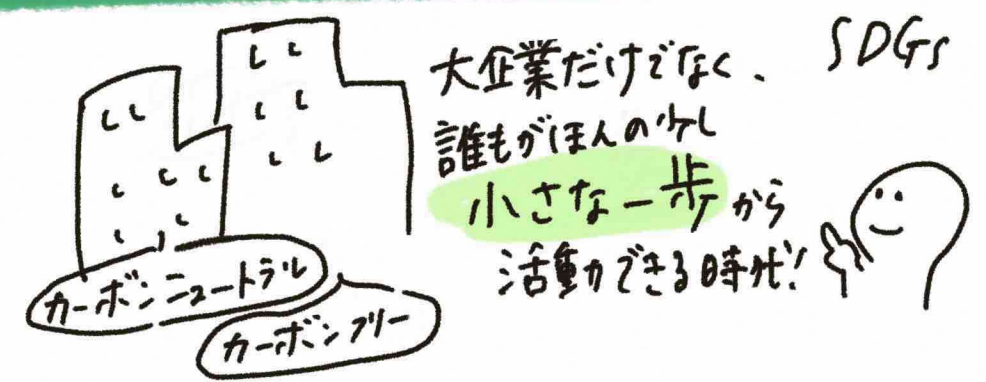 大企業だけでなく、
誰もがほんの少し
小さな一歩から
活動できる時代!
SDGs
カーボンニュートラル
カーボンフリー